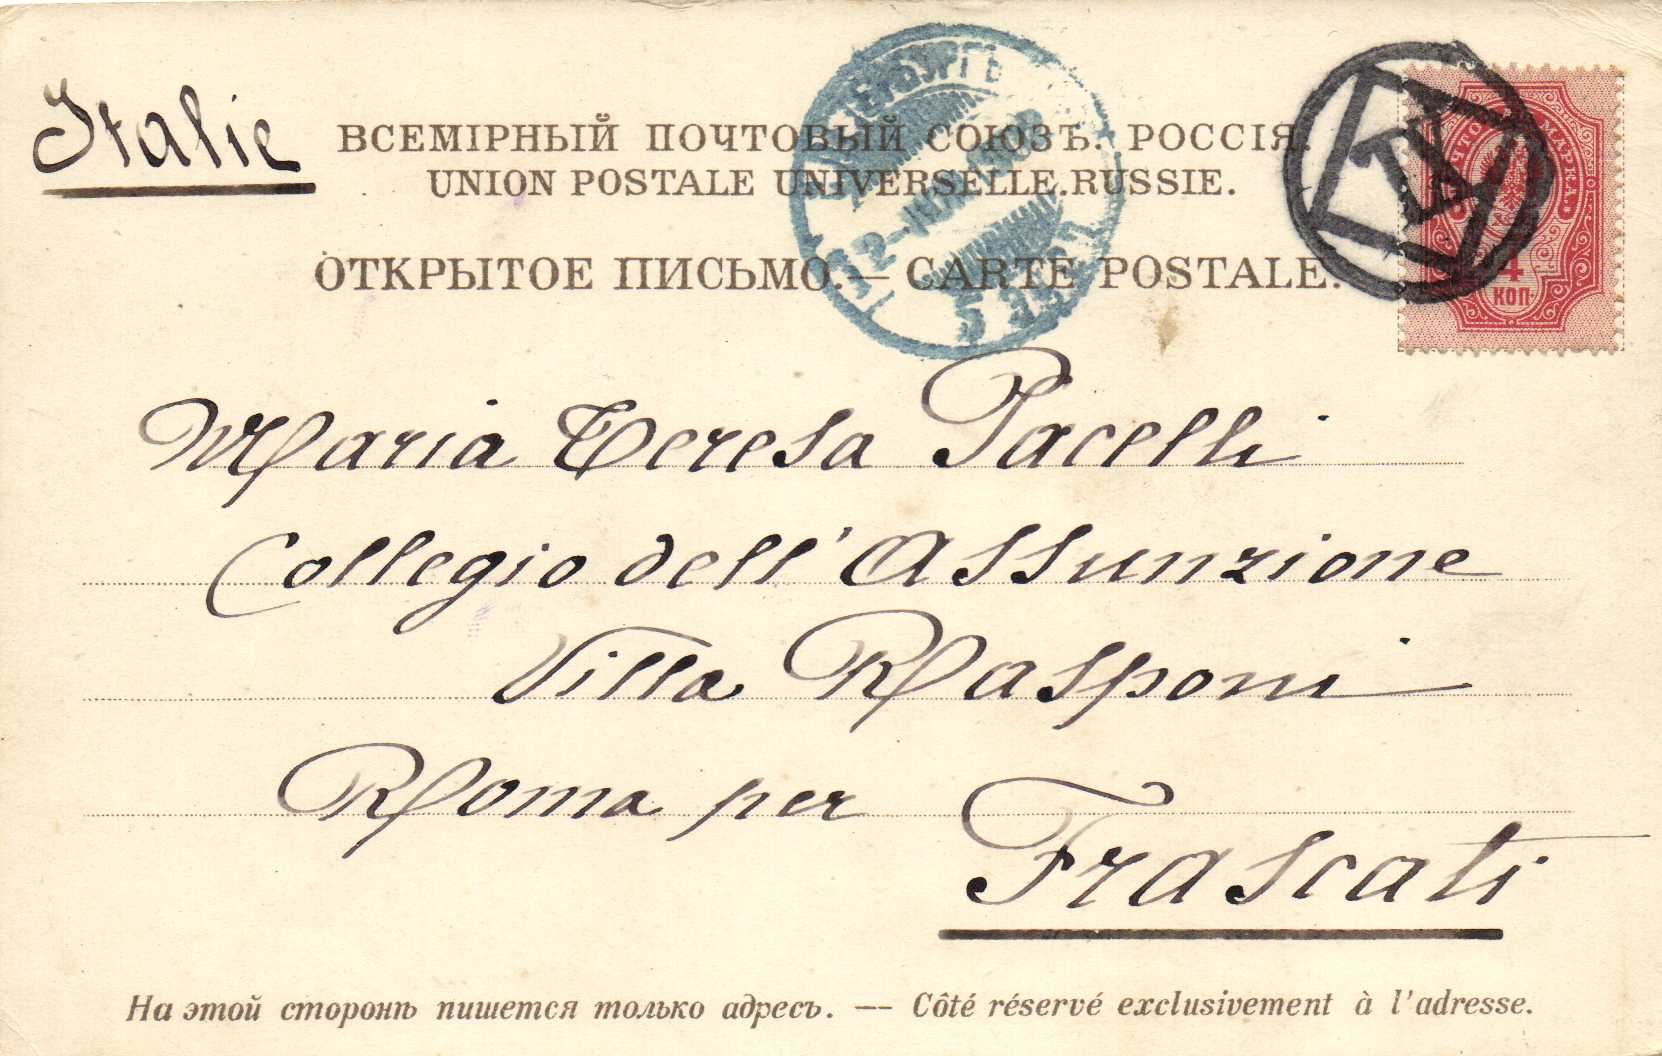 Italie
ВСЕМІРНЫЙ ПОЧТОВЫЙ СОЮЗЪ. РОССІЯ.
UNION POSTALE UNIVERSELLE. RUSSIE.
ОТКРЫТОЕ ПИСЬМО. — CARTE POSTALE.
ПОЧТО МАРКА.
4
КОП.
Maria Teresa Pacelli
Collegio dell'Assunzione
Villa Rasponi
Roma per
Frascati
На этой сторонѣ пишется только адресъ. — Côté réservé exclusivement à l'adresse.